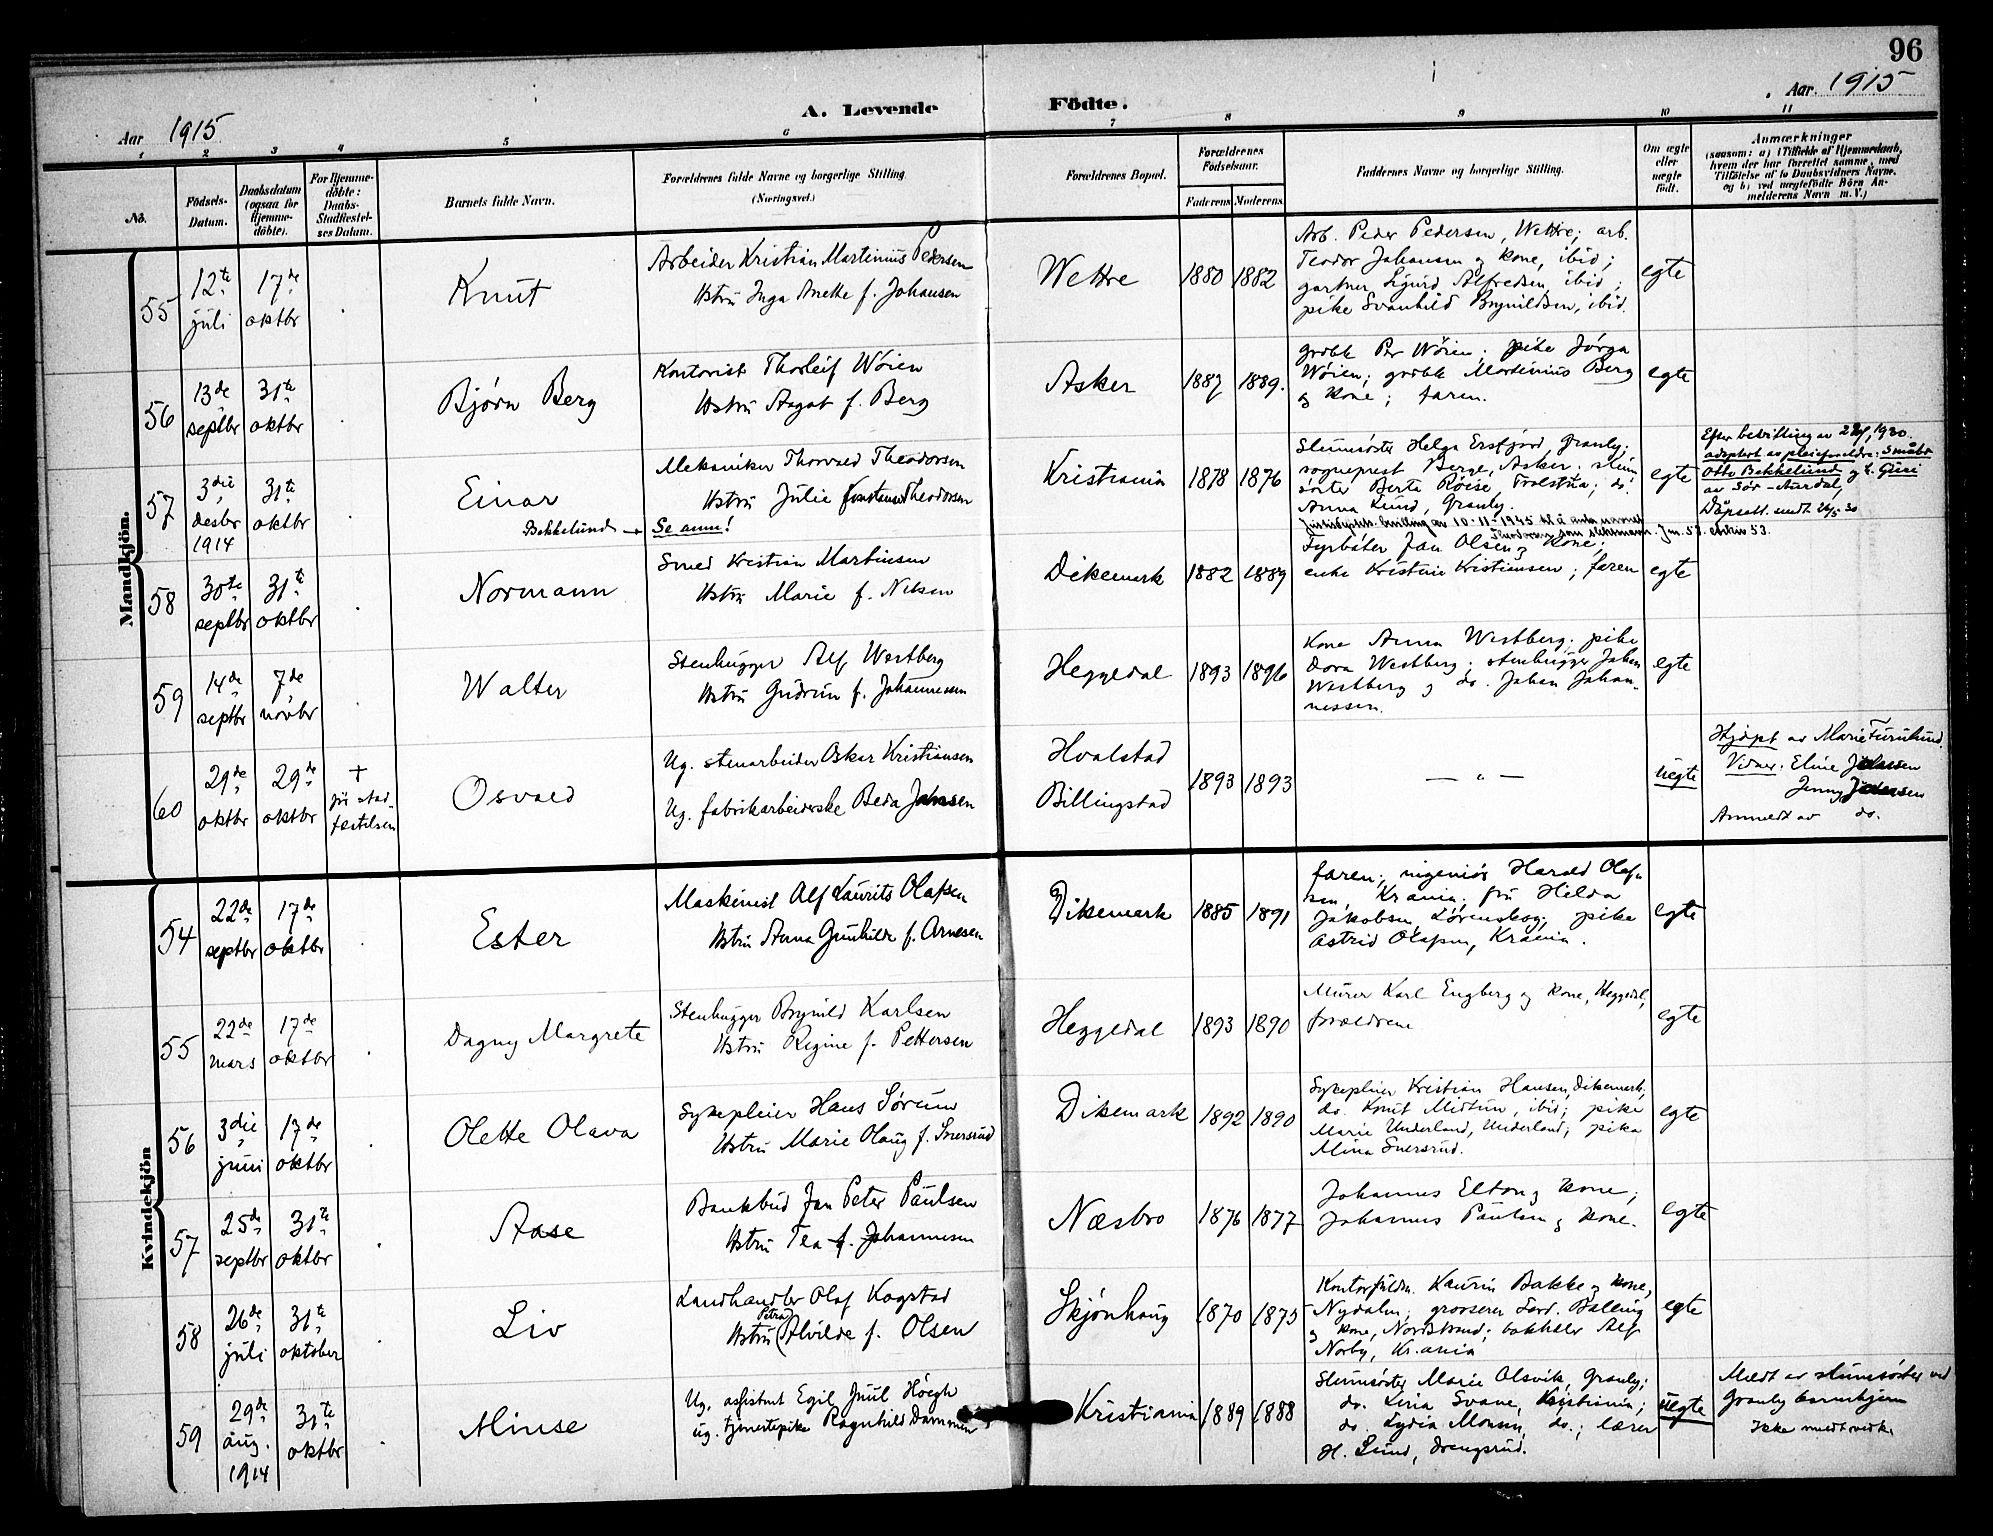 96
Aar 1915
A. Levende Födte.
Aar 1915
1 2 3 4 5 6 7 8 9 10 11
No.
Födsels-Datum.
Daabsdatum (ogsaa for Hjemme-döbte).
For Hjemme-döbte: Daabs-Stadfestel-ses Datum.
Barnets fulde Navn.
Forældrenes fulde Navne og borgerlige Stilling (Næringsvei.)
Forældrenes Bopæl.
Forældrenes Födselsaar.
Faderens Moderens
Faddernes Navne og borgerlige Stilling.
Om ægte eller uægte født.
Anmærkninger
(saasom: a) i Tilfælde af Hjemmedaab, hvem der har forrettet samme, med Tilföielse af to Daabsvidners Navne, og b) ved uægtefödte Börn Anmelderens Navn m. V.)
Mandkjön.
55
12te juli
17de oktbr
Knut
Arbeider Kristian Martinius Pedersen
Hstru Inga Anette f. Johansen
Wettre
1880 1882
Arb. Peder Pedersen, Wettre; arb.
Teodor Johansen og kone, ibid;
gartner Sigurd Alfredsen, ibid;
pike Svanhild Brynildsen, ibid.
egte
56
13de septbr
31te oktbr
Bjørn Berg
Kontorist Thorleif Wøien
Hstru Aagot f. Berg
Asker
1887 1889.
grdbr Per Wøien; pike Jørga
Wøien; grdbr Martinius Berg
og kone; faren.
egte
57
3die desbr 1914
31te oktbr
Einar
Bekkelund
Mekaniker Thorvald Theodorsen
Hstru Julie Konstanse Theodorsen
Se anm!
Kristiania
1878 1876
Slumsøster Helga Ersfjord, Granly;
sogneprest Berge, Asker; slum
søster Berte Røise, Trolstua; do.
Anna Lund, Granly.
egte
Efter bevilling av 1930
adoptert av pleieforeldre: Småbr
Otto Bekkelund og h. Guri
av Sør-Aurdal,
Dåpsatt. sendt 26/5-30
bevilling av 10-11-1945 til å anta navnet
Theodorsen som slektsnavn. Jnr. 57.
58
30te septbr
31te oktbr
Normann
Smed Kristian Martinsen
Hstru Marie f. Nilsen
Dikemark
1882 1889
Fyrbøter Jan Olsen og kone;
enke Kristine Kristiansen; faren
egte
59
14de septbr
7de novbr
Walter
Stenhugger Alf Westberg
Hstru Gudrun f. Johannesen
Heggedal
1893 1896
Kone Anna Westberg; pike
Dora Westberg; stenhugger Johan
Westberg og do. Johan Johan-
nessen.
egte
60
29de oktbr
29de oktbr
+ før stad-festelsen
Osvald
Ug. stenarbeider Oskar Kristiansen
Ug. fabrikarbeiderske Beda Jahnsen
Hvalstad
Billingstad
1893 1893
— " —
uegte
Hjdøpt av Marie Furulund.
Vidner: Eline
Jenny
Anmeldt av do.
Kvindekjön
54
22de septbr
17de oktbr
Ester
Maskinist Alf Laurits Olafsen
Hstru Anna Gunhilde f. Arnesen
Dikemark
1885 1891
faren; ingeniør Harald Olaf-
sen, Krania; fru Hilda
Jakobsen, Lørenskog; pike
Astrid Olafsen, Krania.
egte
55
22de mars
17de oktbr
Dagny Margrete
Stenhugger Brynild Karlsen
Hstru Regine f. Pettersen
Heggedal
1893 1890
Murer Karl Engberg og kone, Heggedal,
forældrene
egte
56
3die juni
17de oktbr
Olette Olava
Sykepleier Hans Sørum
Hstru Marie Olaug f. Snersrud
Dikemark
1892 1890
Sykepleier Kristian Hansen, Dikemark,
do. Knut Midtun, ibid; pike
Marie Underland, Underland; pike
Mina Snersrud.
egte
57
25de septbr
31te oktbr
Aase
Bankbud Jan Peter Paulsen
Hstru Tea f. Johannesen
Næsbro
1876 1877
Johannes Elton og kone;
Johannes Paulsen og kone.
egte
58
26de juli
31te oktober
Liv
Landhandler Olaf Kogstad
Hstru (Petra) Alvilde f. Olsen
Skjønhaug
1870 1875
Kontorfuldm. Laurin Bakke og kone,
Nydalen; grosserer Ferd. Balling
og kone, Nordstrand; bokholder Alf
Norby, Kr.ania
egte
59
29de aug. 1914
31te oktbr
Minse
Ug. assistent Egil Juul Høegh
ug. tjenestepike Ragnhild Dammen
Kristiania
1889 1888
Slumsøster Marie Olsvik, Granly;
do. Lina Svane, Kristiania;
do Lydia Monsen, do.; lærer
H. Lund, Drengsrud.
uegte
Meldt av slumsøster ved
Granly barnehjem
Ikke